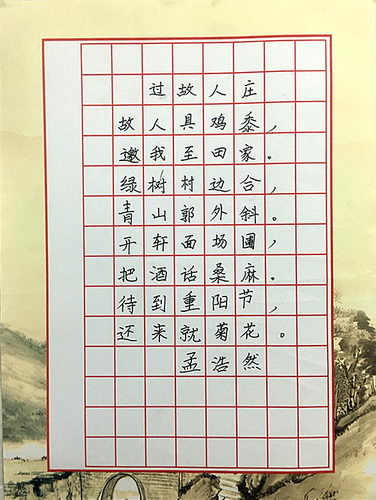 过故人庄
故人具鸡黍，
邀我至田家。
绿树村边合，
青山郭外斜。
开轩面场圃，
把酒话桑麻。
待到重阳节，
还来就菊花。
孟浩然